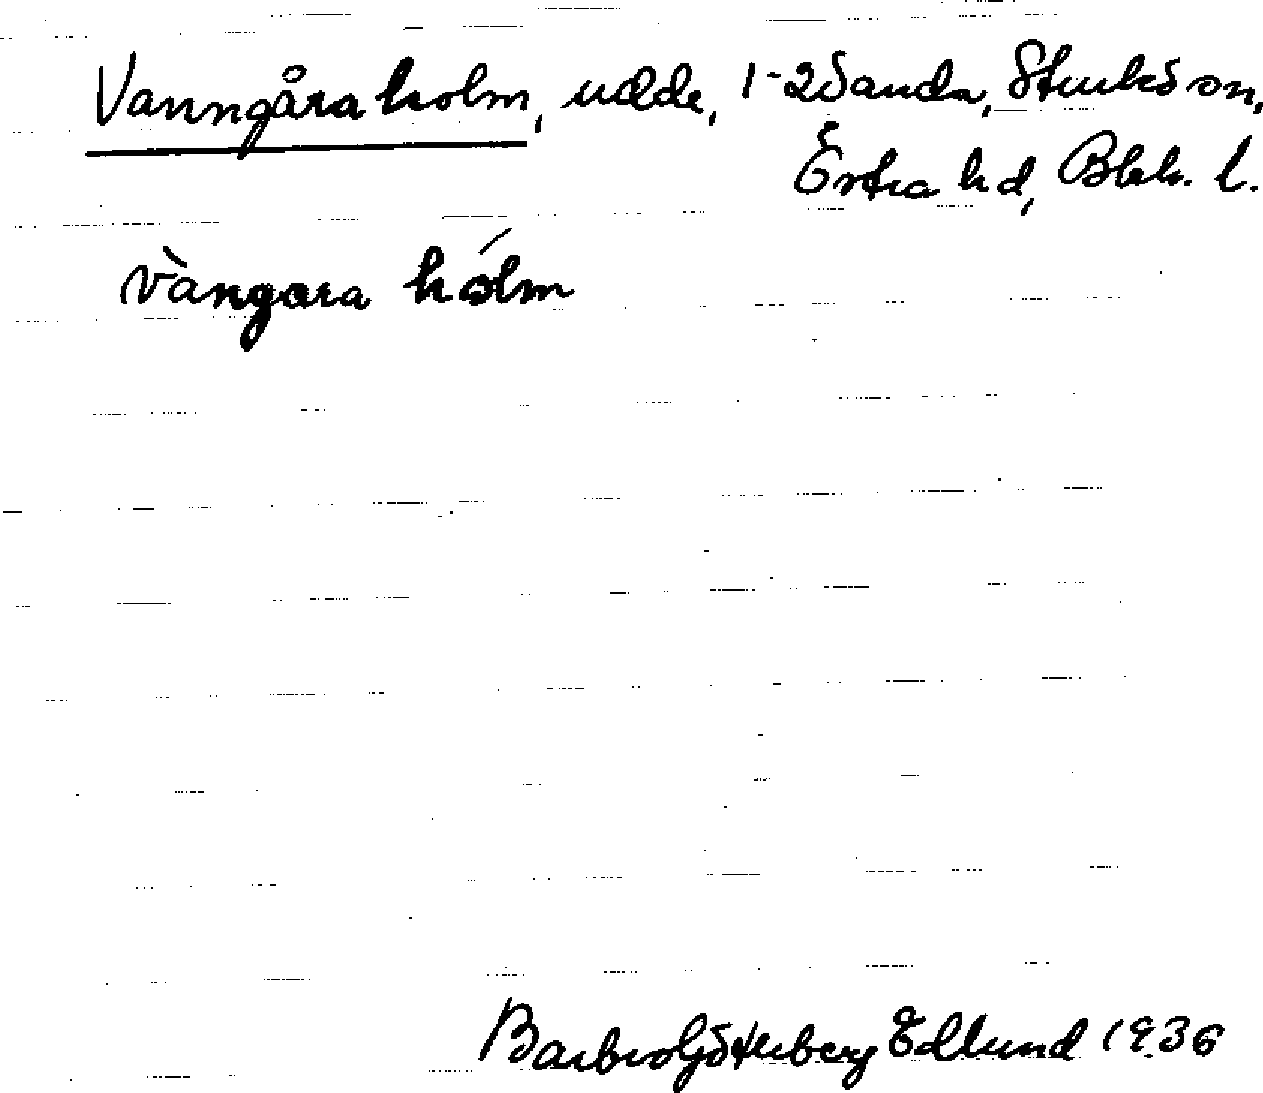 Vanngåraholm, udde, 1-2 Sanda, Sturkö sn,
Östra hd, Blek. l.
vàngara hólm
Barbro Göterberg Edlund 1936